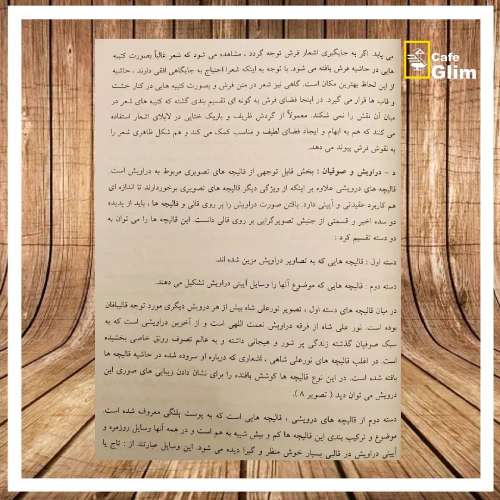 Cafe
Glim
می یابد. اگر به جایگیری اشعار فرش توجه گردد ، مشاهده می شود که شعر غالباً بصورت کتیبه
هایی در حاشیه فرش بافته می شود. با توجه به اینکه شعرا احتیاج به جایگاهی افقی دارند ، حاشیه
از این لحاظ بهترین مکان است. گاهی نیز شعر در متن فرش و بصورت کتیبه هایی در کنار خشت
و قاب ها قرار می گیرد. در اینجا فضای فرش به گونه ای تقسیم بندی گشته که کتیبه های شعر در
میان آن نقش را نمی شکند. معمولاً از گردش ظریف و باریک ختایی در لابلای اشعار استفاده
می کنند که هم به ابهام و ایجاد فضای لطیف و مناسب کمک می کند و هم شکل ظاهری شعر را
به نقوش فرش پیوند می دهد.
د – دراویش و صوفیان : بخش قابل توجهی از قالیچه های تصویری مربوط به دراویش است.
قالیچه های درویشی علاوه بر اینکه از ویژگی دیگر قالیچه های تصویری برخوردارند تا اندازه ای
هم کاربرد عقیدتی و آیینی دارد. بافتن صورت دراویش را بر روی قالی و قالیچه ها ، باید از پدیده
دو سده اخیر و قسمتی از جنبش تصویرگرایی بر روی قالی دانست. این قالیچه ها را می توان به
دو دسته تقسیم کرد :
دسته اول : قالیچه هایی که به تصاویر دراویش مزین شده اند.
دسته دوم : قالیچه هایی که موضوع آنها را وسایل آیینی دراویش تشکیل می دهند.
در میان قالیچه های دسته اول ، تصویر نورعلی شاه بیش از هر درویش دیگری مورد توجه قالیبافان
بوده است. نور علی شاه از فرقه دراویش نعمت اللهی است و از آخرین دراویشی است که به
سبک صوفیان گذشته زندگی پر شور و هیجانی داشته و به عالم تصوف رونق خاصی بخشیده
است. در اغلب قالیچه های نورعلی شاهی ، اشعاری که درباره او سروده شده در حاشیه قالیچه ها
بافته شده است. در این نوع قالیچه ها کوشش بافنده را برای نشان دادن زیبایی های صوری این
درویش می توان دید ( تصویر ۸ ).
دسته دوم از قالیچه های درویشی ، قالیچه هایی است که به پوست پلنگی معروف شده است.
موضوع و ترکیب بندی این قالیچه ها کم و بیش شبیه به هم است و در همه آنها وسایل روزمره و
آیینی دراویش در قالبی بسیار خوش منظر و گیرا دیده می شود. این وسایل عبارتند از : تاج یا